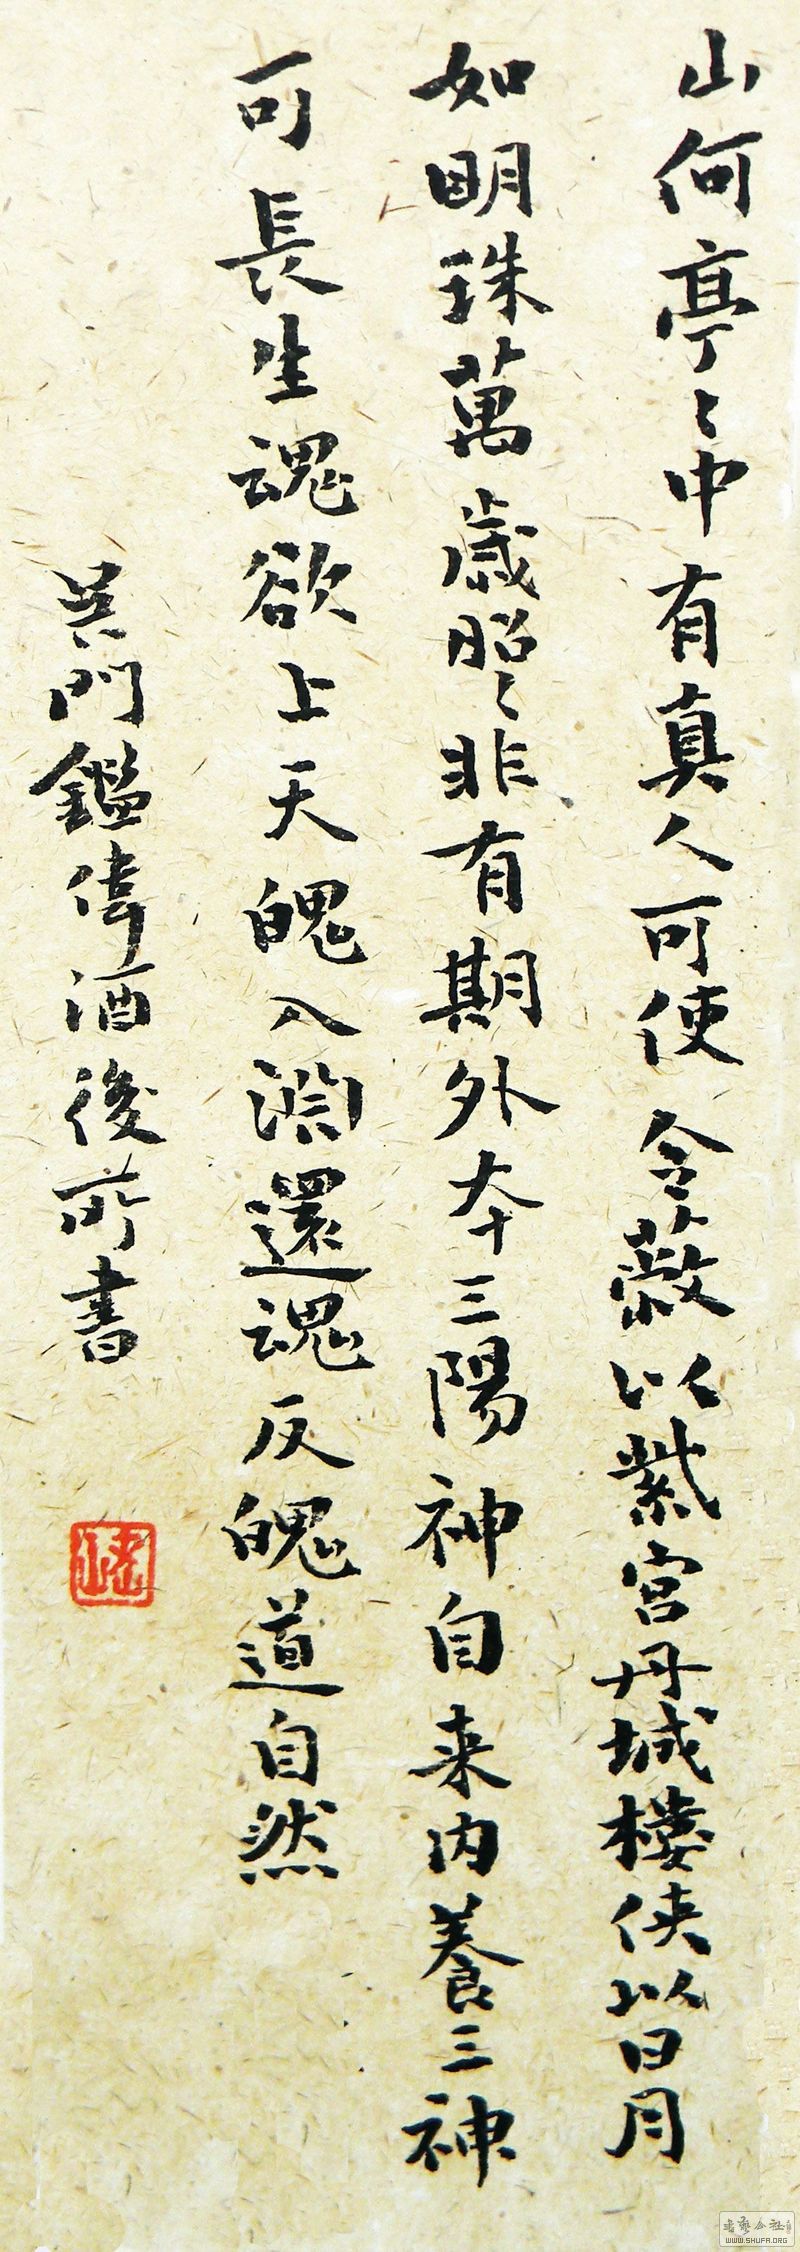 山何亭〻中有真人可使令蔽以紫宮丹城樓侠以日月
如明珠萬歲昭〻非有期外夲三陽神自来内養三神
可長生魂欲上天魄入淵還魂反魄道自然
吴門鑑偉酒後所書
WWW.SHUFA.ORG